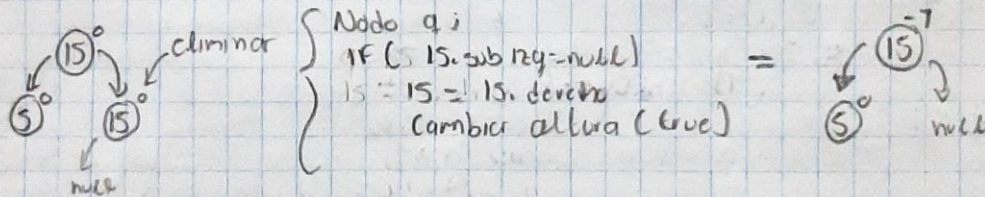 15 0
eliminar
5 0
15 0
null
Nodo q;
IF (15.sub izq=null)
15 = 15. derecho
Cambiar altura (true)
=
15 -1
5 0
null